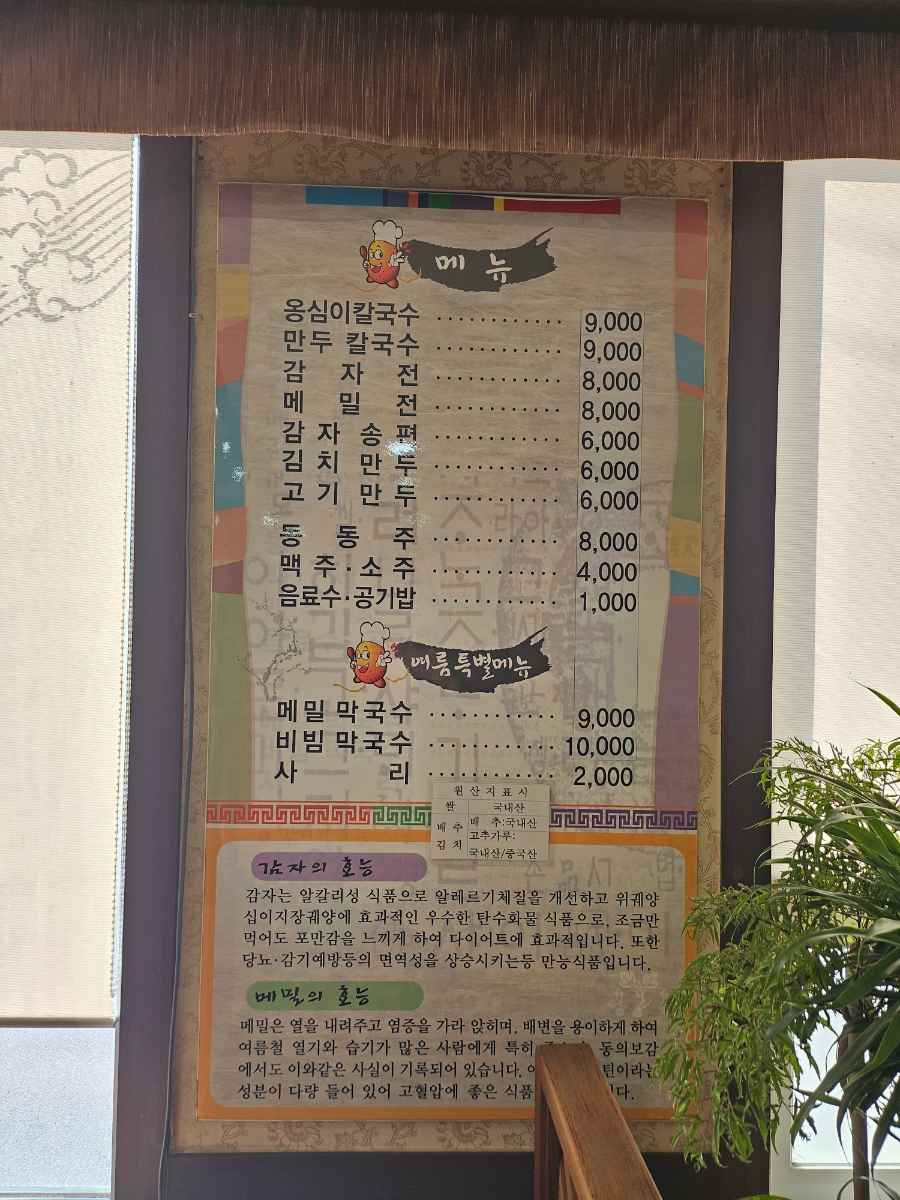 메뉴
옹심이칼국수 ············ 9,000
만두 칼국수 ············ 9,000
감 자 전 ············ 8,000
메 밀 전 ············ 8,000
감 자 송 편 ············ 6,000
김 치 만 두 ············ 6,000
고 기 만 두 ············ 6,000
동 동 주 ············ 8,000
맥 주 · 소 주 ············ 4,000
음료수·공기밥 ············ 1,000
여름특별메뉴
메밀 막국수 ············ 9,000
비빔 막국수 ············ 10,000
사 리 ············ 2,000
원산지표시
쌀 국내산
배추김치 배 추:국내산
고추가루:
국내산/중국산
감자의 효능
감자는 알칼리성 식품으로 알레르기체질을 개선하고 위궤양
십이지장궤양에 효과적인 우수한 탄수화물 식품으로, 조금만
먹어도 포만감을 느끼게 하여 다이어트에 효과적입니다. 또한
당뇨·감기예방등의 면역성을 상승시키는등 만능식품입니다.
메밀의 효능
메밀은 열을 내려주고 염증을 가라 앉히며, 배변을 용이하게 하여
여름철 열기와 습기가 많은 사람에게 특히 동의보감
에서도 이와같은 사실이 기록되어 있습니다.
성분이 다량 들어 있어 고혈압에 좋은